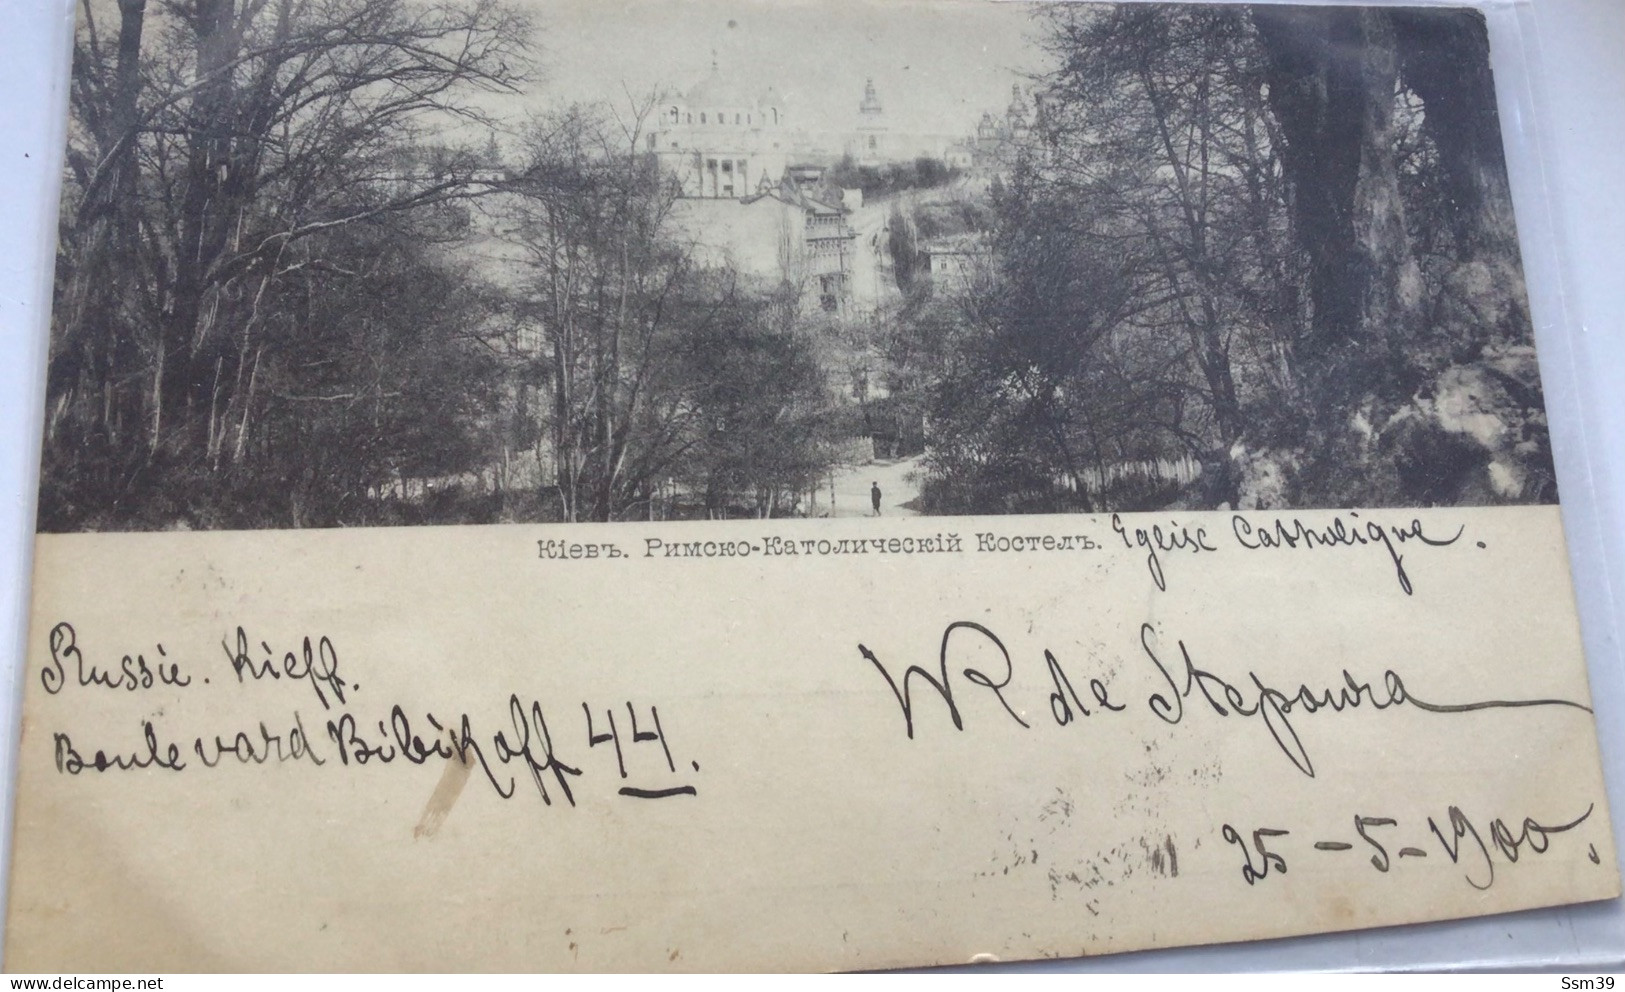 Кіевъ. Римско-Католическій Костелъ. Eglise Catholique.
Russie. Kieff.
Boulevard Bibikoff 44.
WR de Stepowra
25-5-1900.
Ssm39